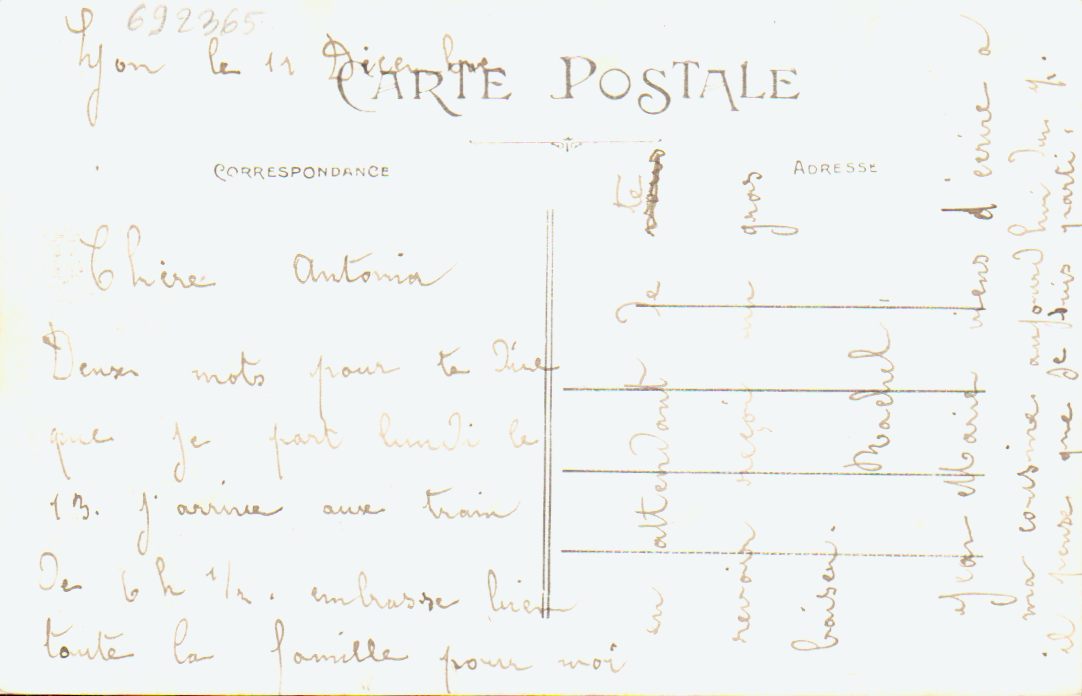 692365
Lyon le 11 Dicembre
CARTE POSTALE
CORRESPONDANCE
ADRESSE
Chère Antonia
Deux mots pour te dire
que je part lundi le
13. j'arrive aux train
de 6 h 1/2. embrasse bien
toute la famille pour moi
en attendant de te
revoir reçoi un gros
baiser.
Rachel
Jean Marie viens d'écrire a
ma cousine aujourd'hui
il pense que je suis parti.